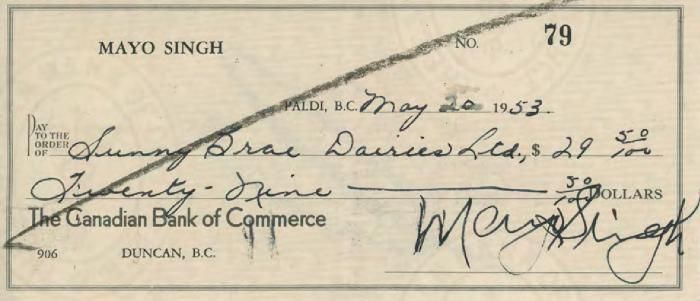 MAYO SINGH NO. 79
PALDI, B.C. May 20 1953.
PAY TO THE ORDER OF Sunny Brae Dairies Ltd., $ 29 50/100
Twenty-Nine 50/100 DOLLARS
The Canadian Bank of Commerce
906 DUNCAN, B.C.
Mayo Singh